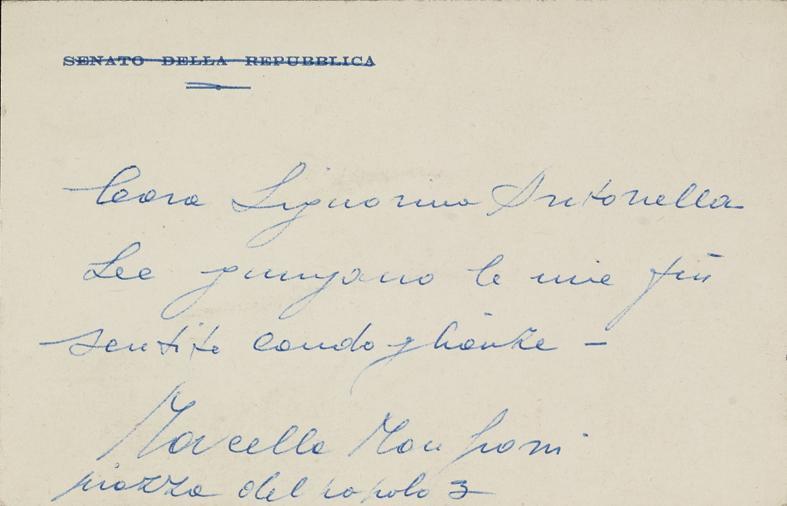 SENATO DELLA REPUBBLICA
Cara Signorina Antonella
Lee giungano le mie più
sentite condoglianze -
Marcella
piazza del popolo 3